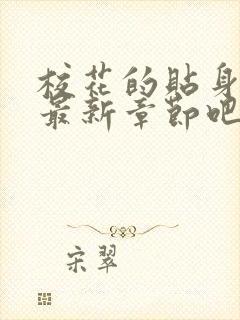 校花的貼身
最新章節吧
宋翠